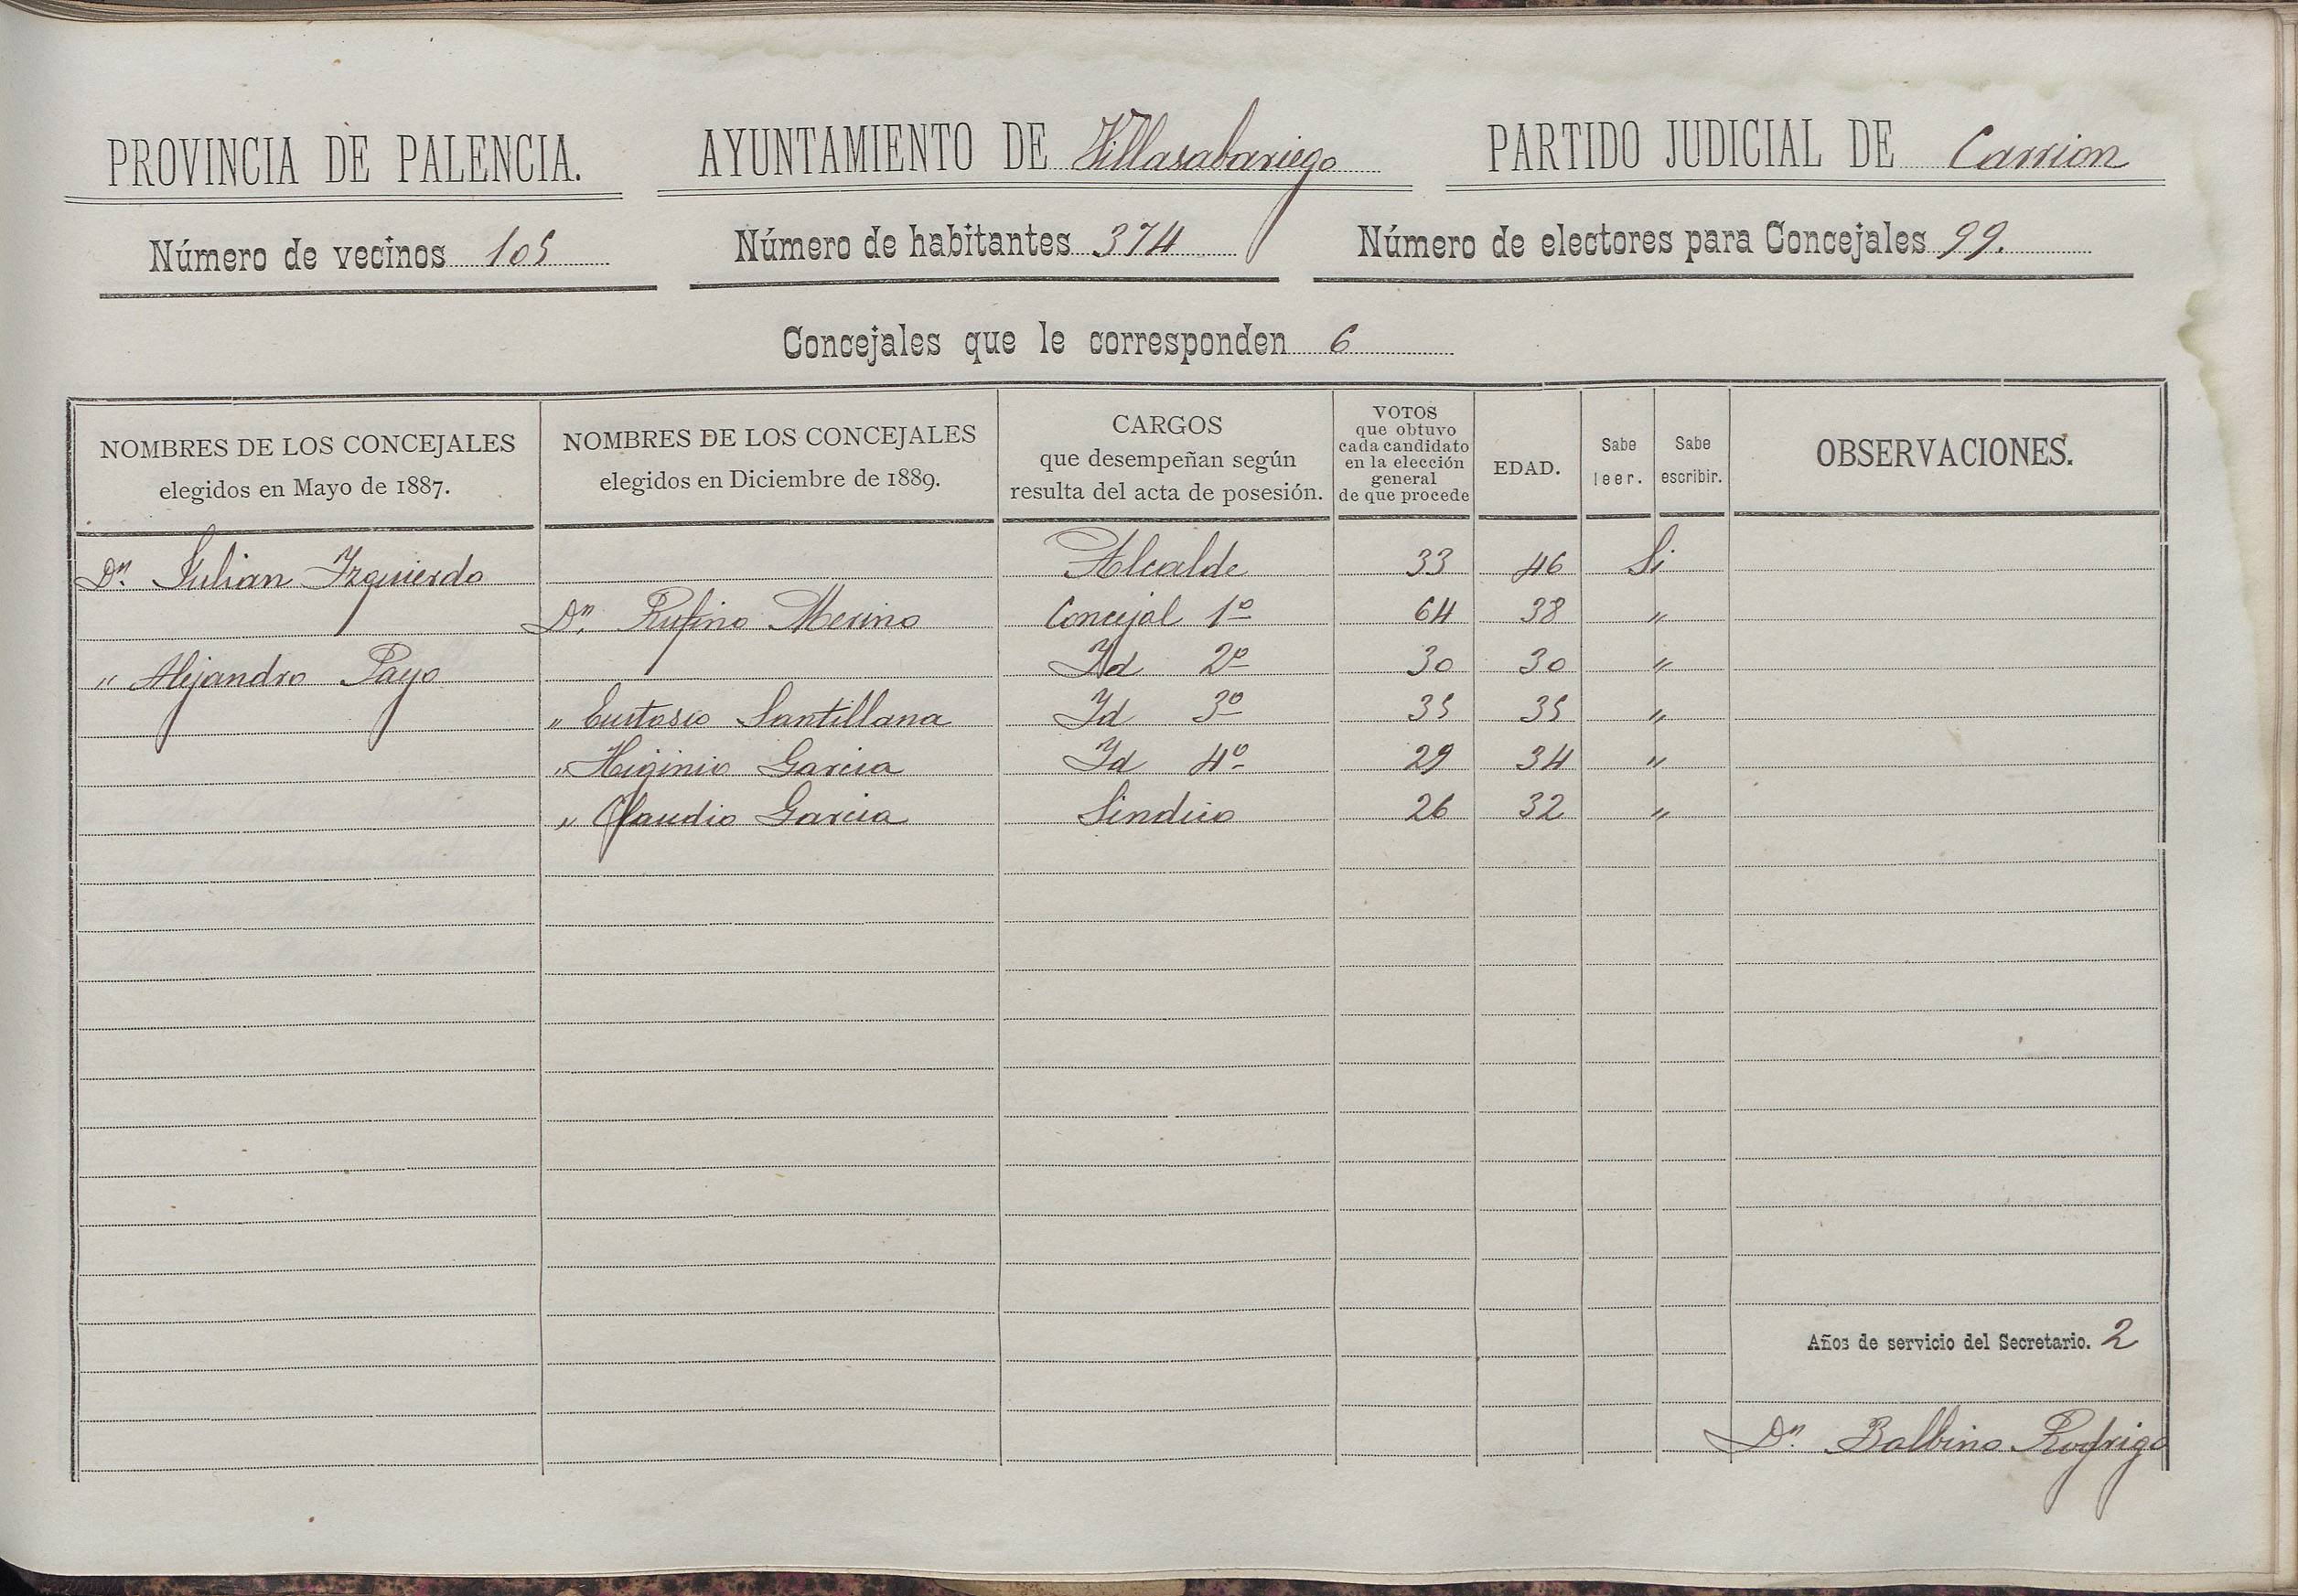 PROVINCIA DE PALENCIA. AYUNTAMIENTO DE Villasabariego PARTIDO JUDICIAL DE Carrion
Número de vecinos 105 Número de habitantes 374 Número de electores para Concejales 99.
Concejales que le corresponden 6
NOMBRES DE LOS CONCEJALES
elegidos en Mayo de 1887.
NOMBRES DE LOS CONCEJALES
elegidos en Diciembre de 1889.
CARGOS
que desempeñan según
resulta del acta de posesión.
VOTOS
que obtuvo
cada candidato
en la elección
general
de que procede
EDAD.
Sabe
leer.
Sabe
escribir.
OBSERVACIONES.
Dn. Julian Izquierdo Alcalde 33 46 Si
Dn. Rufino Merino Concejal 1º 64 38 "
" Alejandro Payo Id 2º 30 30 "
" Eustasio Santillana Id 3º 35 35 "
" Higinio Garcia Id 4º 29 34 "
" Claudio Garcia Sindico 26 32 "
Años de servicio del Secretario. 2
Dn. Balbino Rodrigo